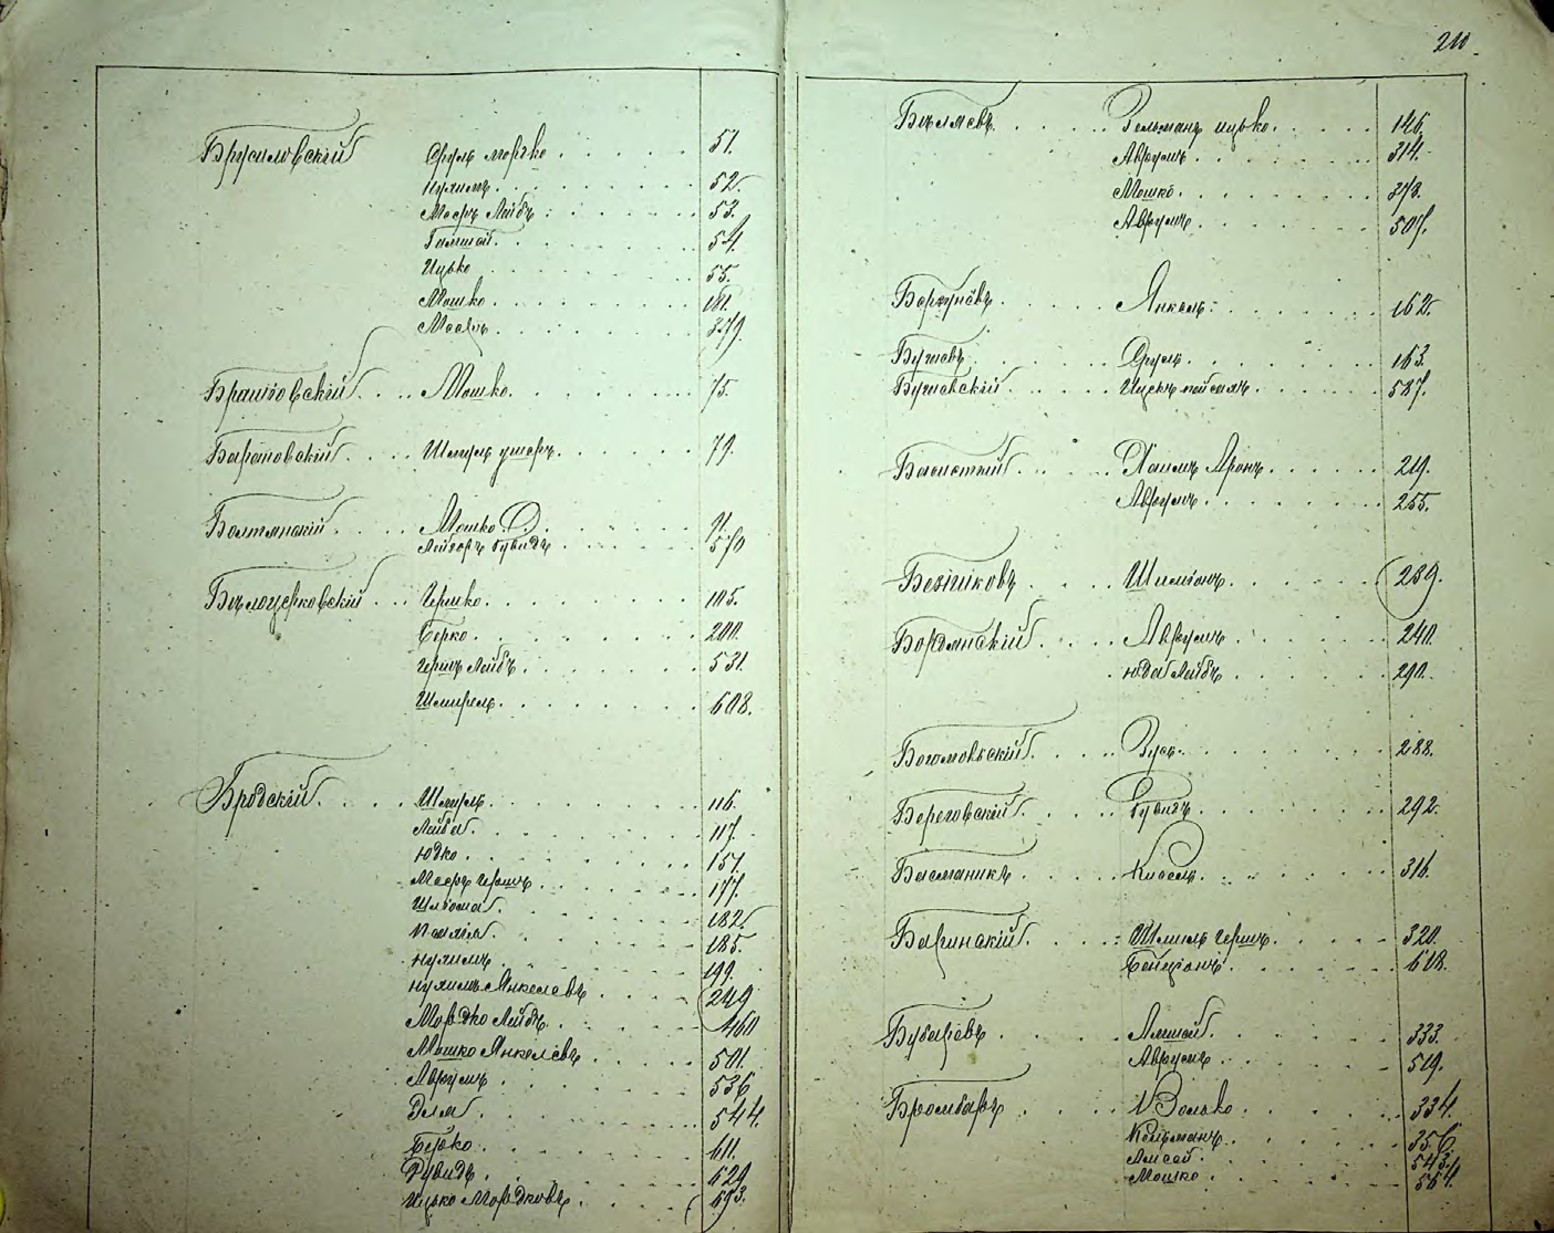 210
Брусиловскій Сруль Мордко 51.
Нухимъ 52.
Мееръ Лейбъ 53.
Гамшай 54.
Ицько 55.
Мошко 181.
Мееръ 379.
Брашовскій Мошко 75.
Барановскій Шмуль Ушеръ 79.
Болтянскій Мошко 91.
Лейзоръ Рувидъ 570
Бѣлоцерковскій Гершко 105.
Берко 200.
Гершъ Лейбъ 531.
Шмирель 608.
Бродскій Шмуль 116.
Лейба 117.
Юдко 157.
Мееръ Гершъ 177.
Шлёма 182.
185.
Нухимъ 199.
Нухимъ Янкелевъ 249
Мордко Лейбъ 460
Мошко Янкелевъ 501.
Аврумъ 536
Элья 544.
Берко 611.
Рувидъ 629
Ицько Мордковъ 693.
Бѣляевъ Зельманъ Ицько 146.
Аврумъ 314.
Мошко 378.
Аврумъ 507.
Янкель 162.
Бугаевъ Сруль 163.
Бугаевскій Ицекъ 587.
Басистый Хаимъ Аронъ 219.
Аврумъ 255.
Шимонъ 239.
Аврумъ 240.
Юда Лейбъ 290.
Богомольскій Зусь 288.
Береговскій Рувидъ 292.
Басманикъ Кисель 316.
Баринскій Шмуль Гершъ 320.
Бенціонъ 618.
Бубаревъ Алшай 333.
Аврумъ 519.
Бромбаръ Волько 334.
Кельманъ 356.
543.
Мошко 564.